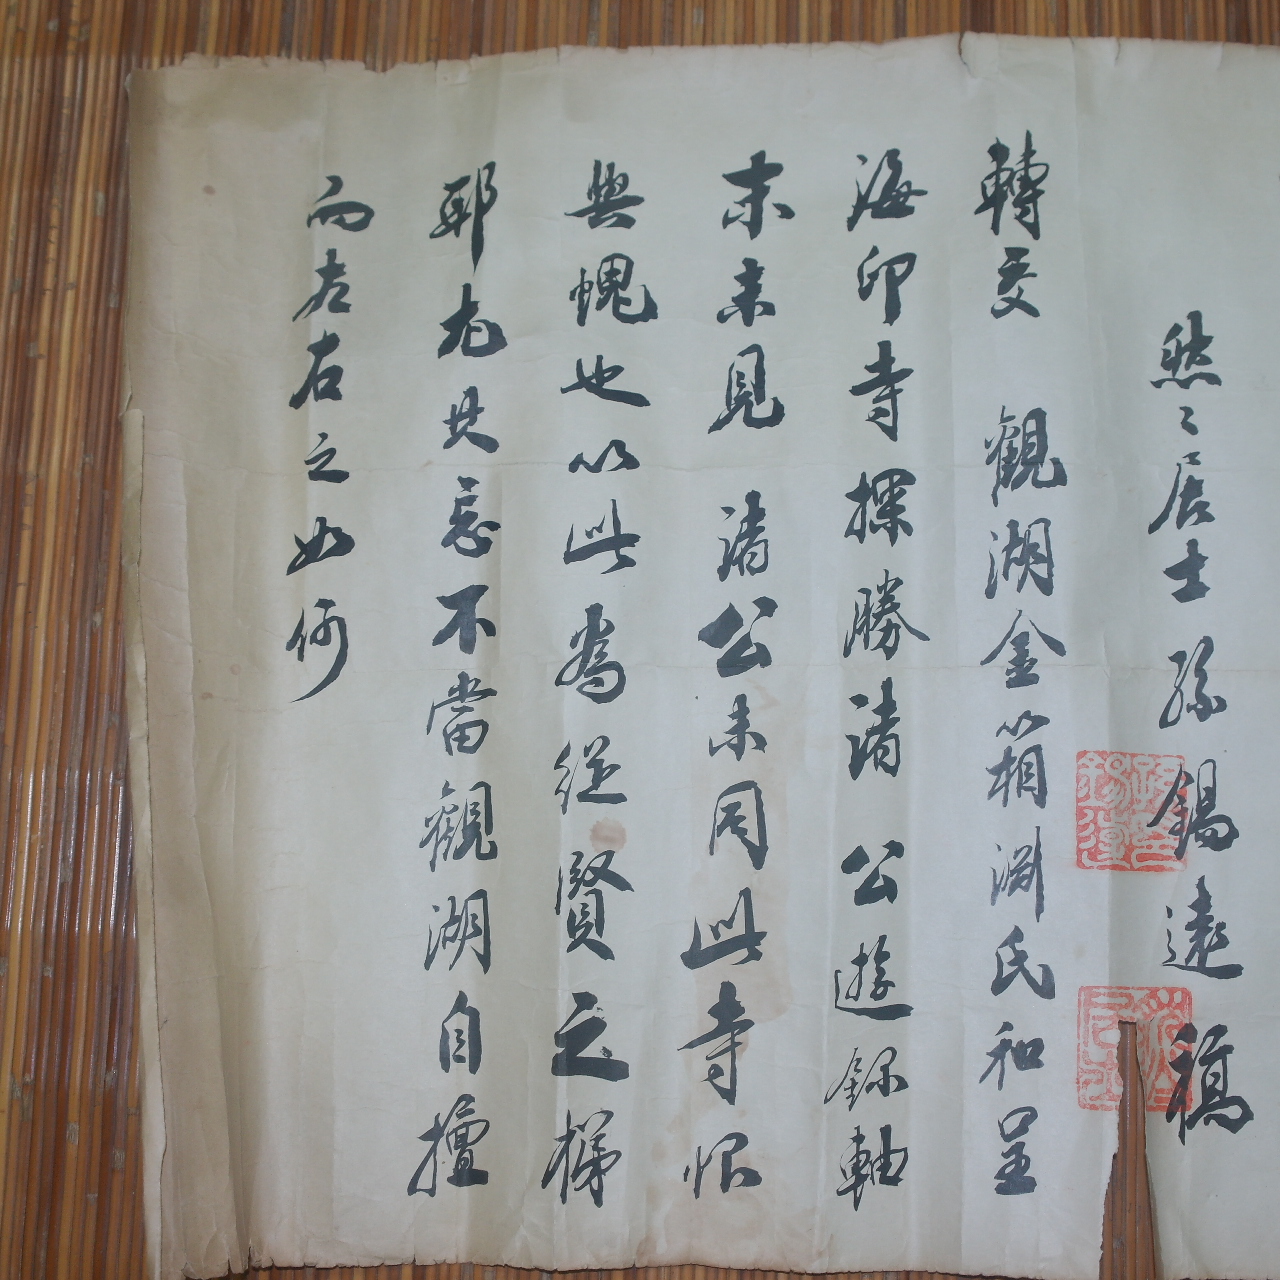 然々居士孫錫遠稿
轉交 觀湖金箱淵氏和呈
海印寺探勝諸公遊錄軸
末未見諸公未同此寺恨
與愧也以此為從賢之梯
耶尤其忘不當觀湖自擅
而左右之如何